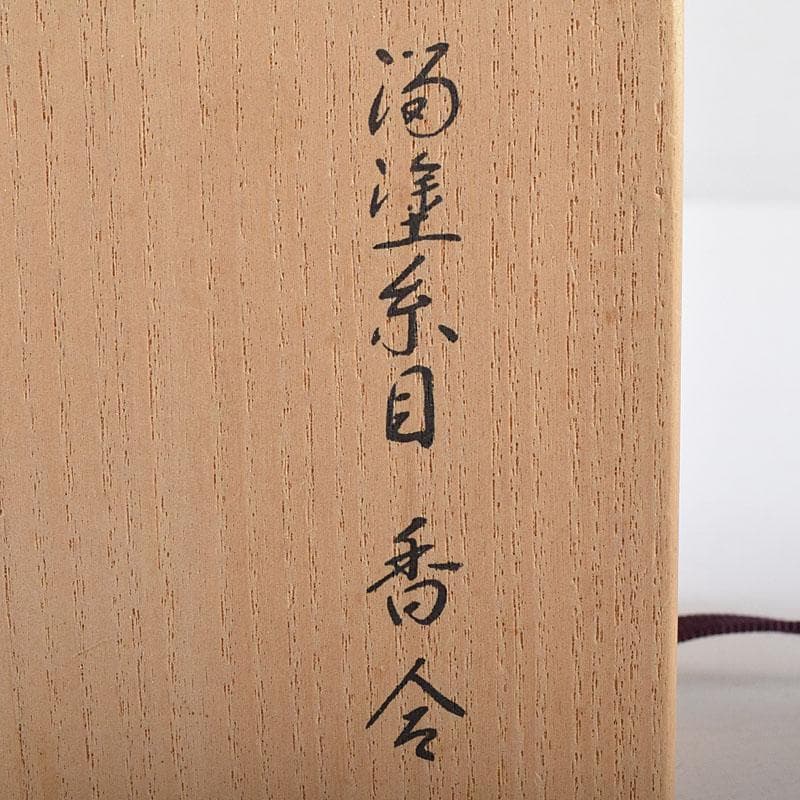 溜塗糸目 香合